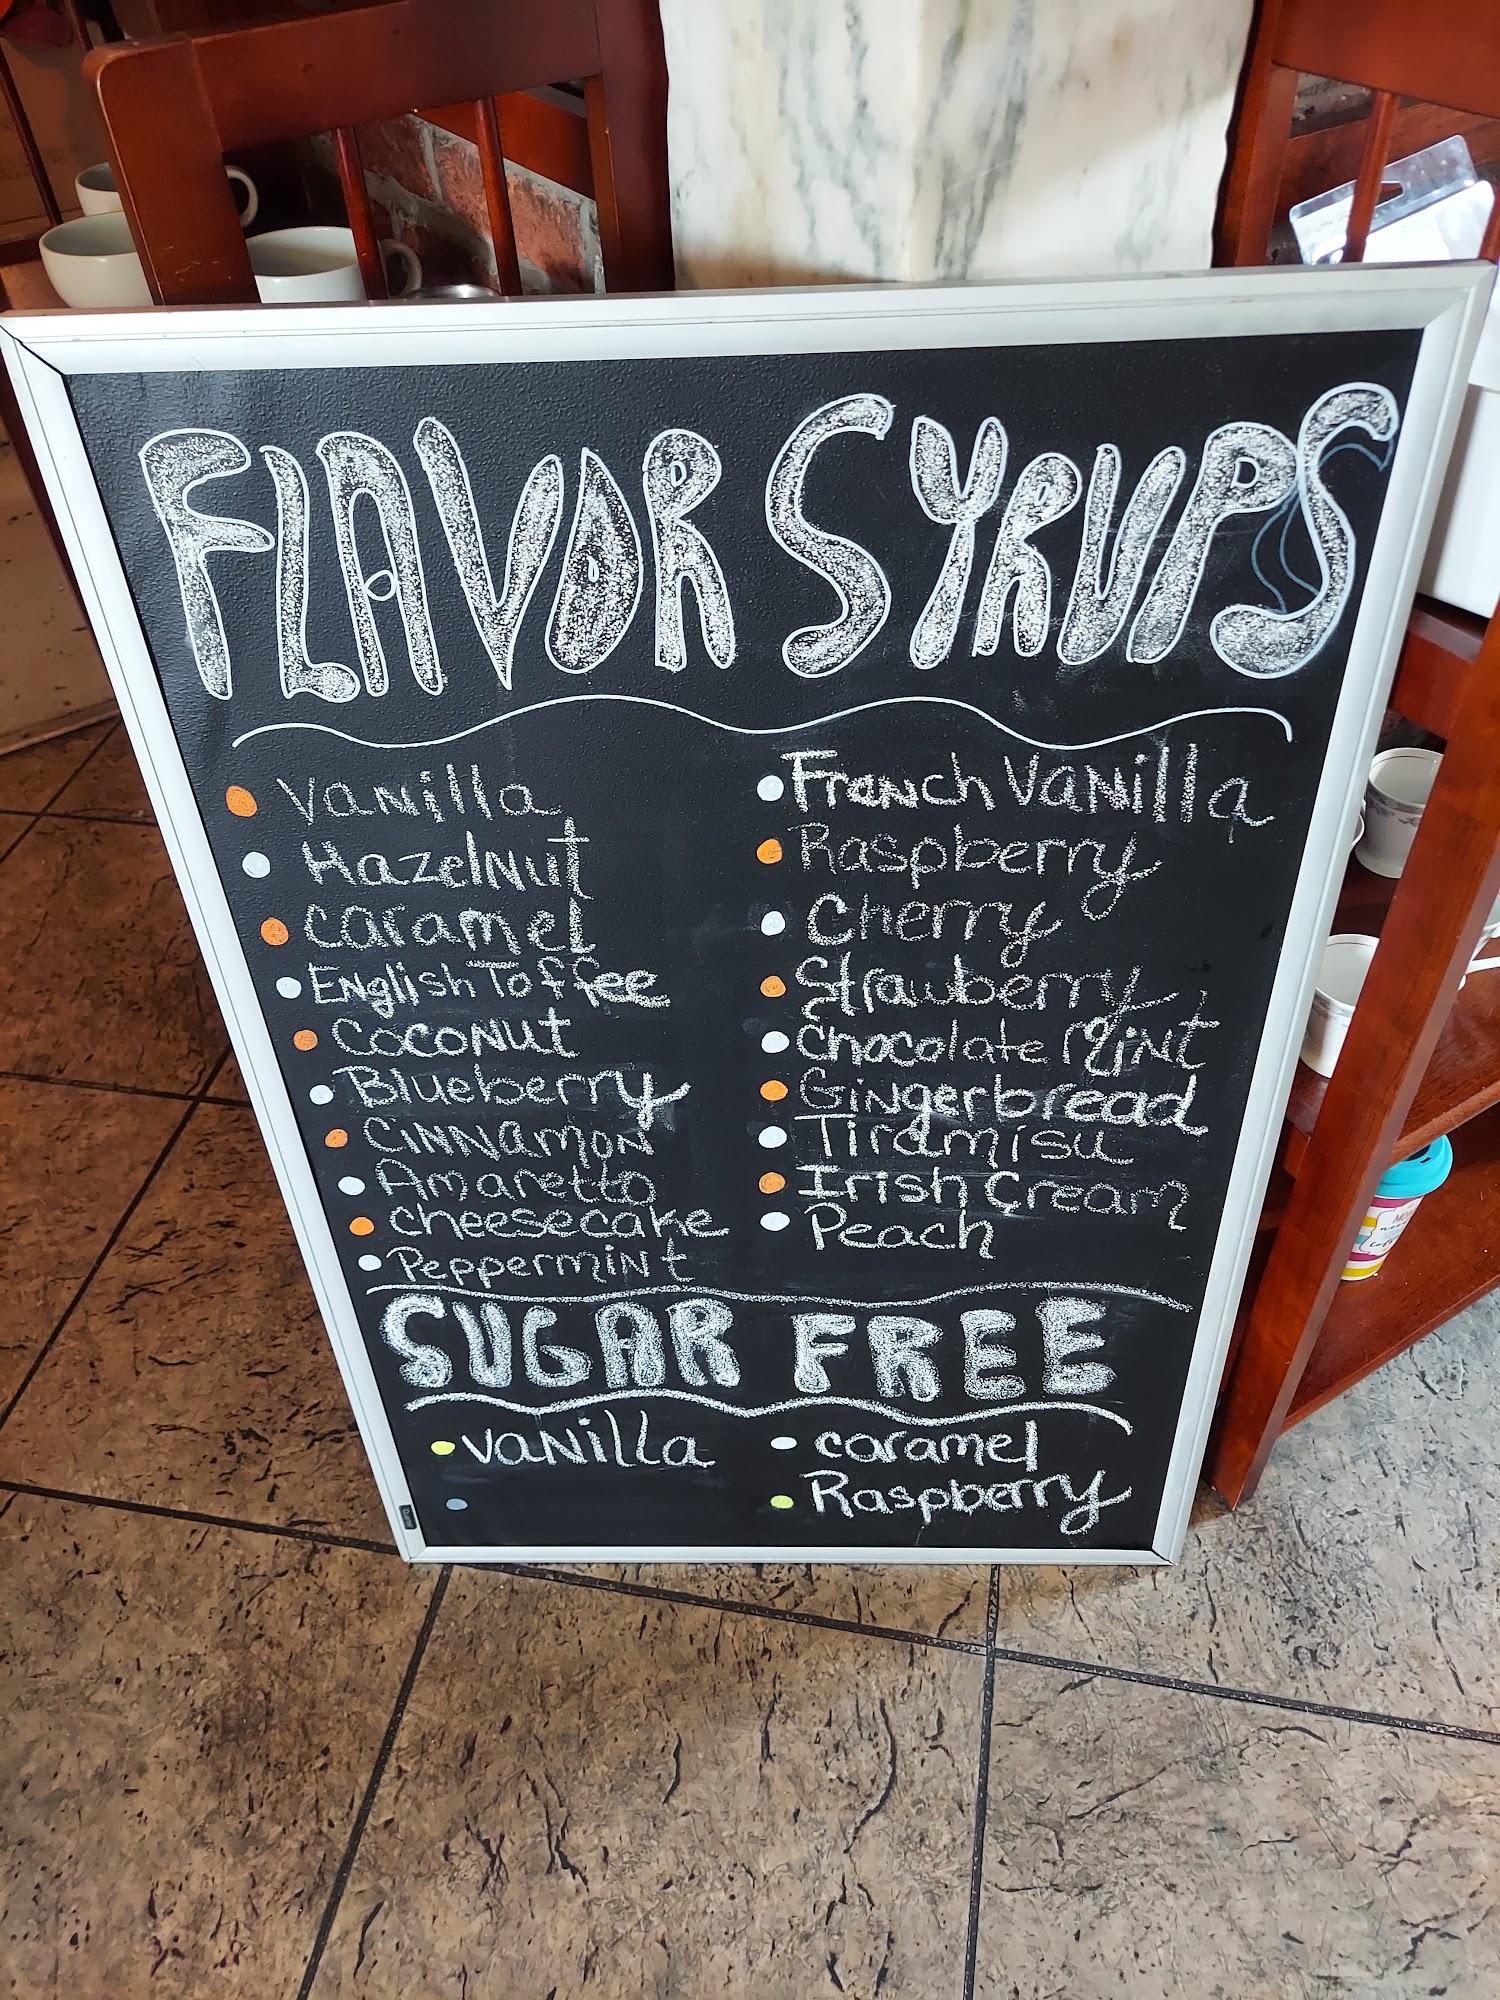 FLAVOR SYRUPS
Vanilla
Hazelnut
Caramel
English Toffee
Coconut
Blueberry
Cinnamon
Amaretto
Cheesecake
Peppermint
French Vanilla
Raspberry
Cherry
Strawberry
Chocolate Mint
Gingerbread
Tiramisu
Irish Cream
Peach
SUGAR FREE
Vanilla
Caramel
Raspberry